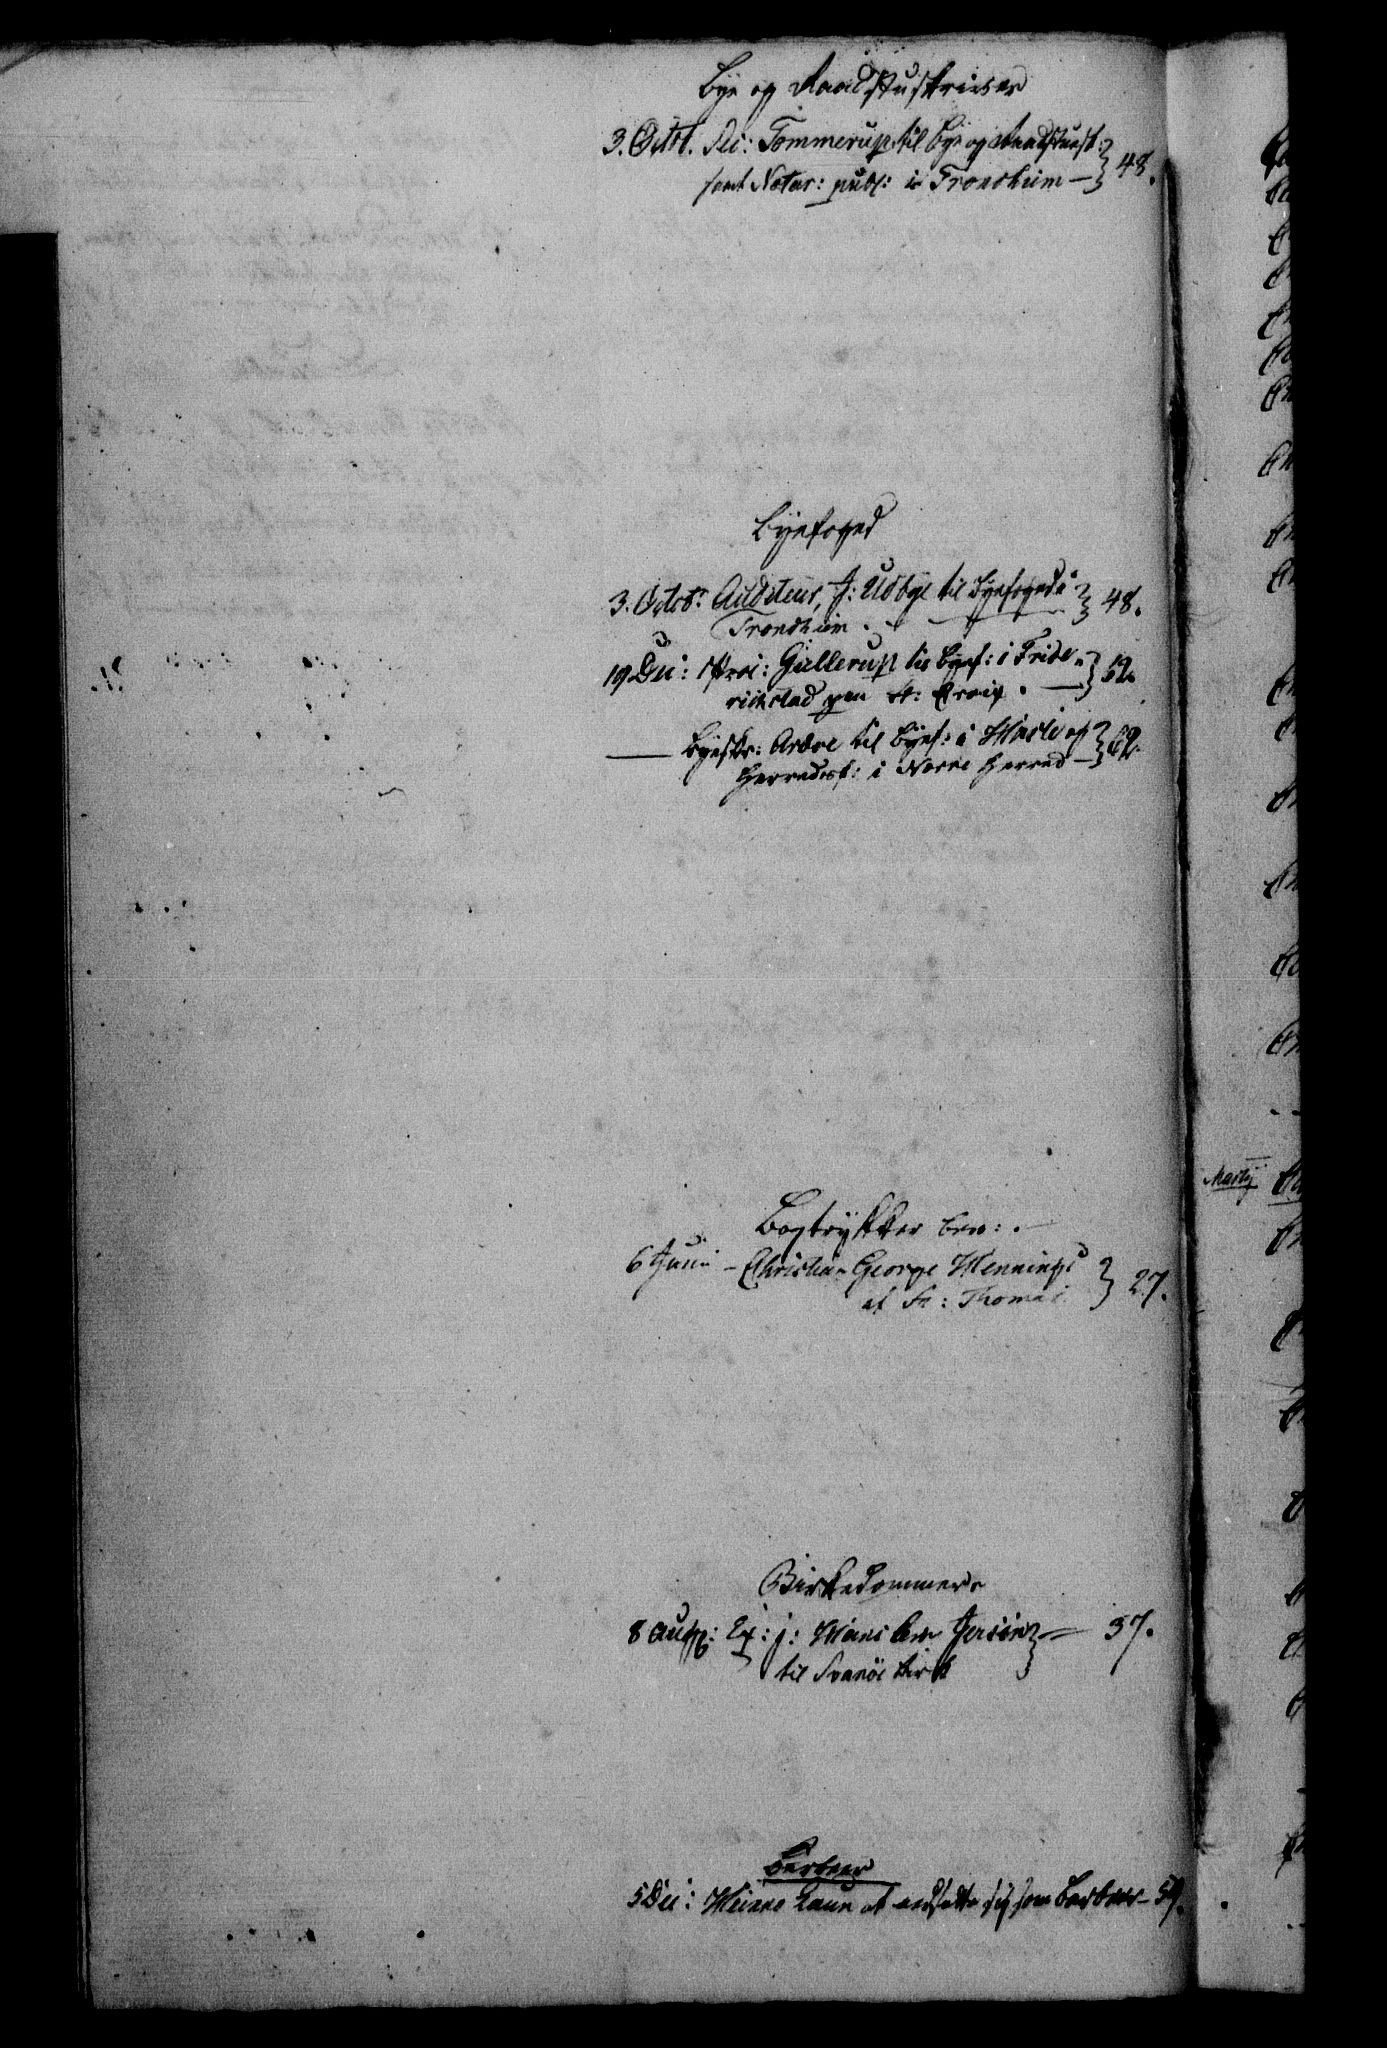 Bye og Raadstuskriver
3. Octob. Sec: Tommerup til Bye og Raadstuesk:
samt Notar: publ: i Trondhiem — 48.
Byefoged
3. Octobr Auditeur, J: Udbye til Byefoged i
Trondhiem . 48.
19 Dec: Proc: Gullerup til Byef: i Fride-
richstad paa St: Croix . —
— Byeskr: til Byef: i Hasle og
Herredsf: i Norre Herred —
Bogtrykker bev: . —
6 Junii — Christian George Hennings
af St: Thomas 27.
Birkedommere
8 Aug: Ex: j: Hans Iversen — 37.
til Svanöe Birk
Barbeer
5 Dec: Laun at nedsætte sig som Barbeer — 59.